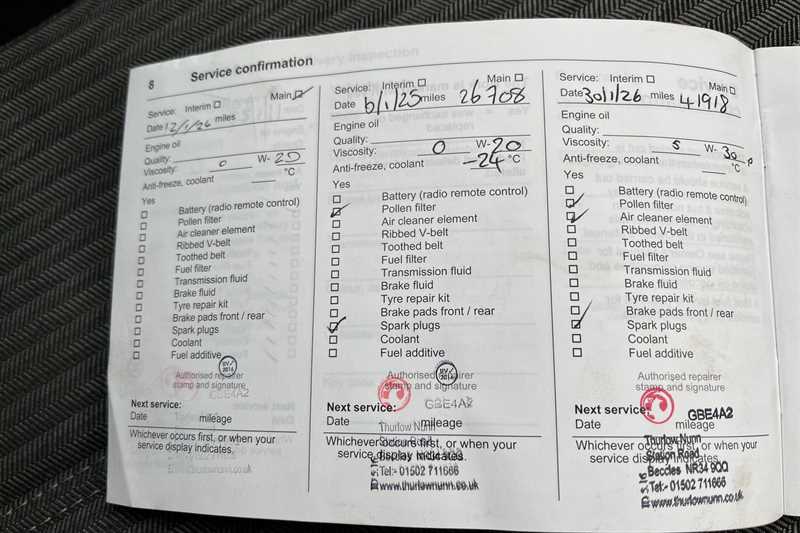 8 Service confirmation
Service: Interim Main
Date 12/1/26 miles
Engine oil
Quality:
Viscosity: 0 W- 20
Anti-freeze, coolant °C
Yes
Battery (radio remote control)
Pollen filter
Air cleaner element
Ribbed V-belt
Toothed belt
Fuel filter
Transmission fluid
Brake fluid
Tyre repair kit
Brake pads front / rear
Spark plugs
Coolant
Fuel additive
Authorised repairer
stamp and signature
GBE4A2
Next service:
Date mileage
Whichever occurs first, or when your
service display indicates.
Service: Interim Main
Date /1/25 miles 26708
Engine oil
Quality:
Viscosity: 0 W-20
Anti-freeze, coolant -24 °C
Yes
Battery (radio remote control)
Pollen filter
Air cleaner element
Ribbed V-belt
Toothed belt
Fuel filter
Transmission fluid
Brake fluid
Tyre repair kit
Brake pads front / rear
Spark plugs
Coolant
Fuel additive
Authorised repairer
stamp and signature
GBE4A2
Next service:
Date mileage
Thurlow Nunn
Whichever occurs first, or when your
service display indicates.
Tel:- 01502 711666
www.thurlownunn.co.uk
Service: Interim Main
Date 30/1/26 miles 41918
Engine oil
Quality:
Viscosity: 5 W- 30
Anti-freeze, coolant °C
Yes
Battery (radio remote control)
Pollen filter
Air cleaner element
Ribbed V-belt
Toothed belt
Fuel filter
Transmission fluid
Brake fluid
Tyre repair kit
Brake pads front / rear
Spark plugs
Coolant
Fuel additive
Authorised repairer
stamp and signature
GBE4A2
Next service:
Date mileage
Whichever occurs first, or when your
service display indicates.
Thurlow Nunn
Station Road
Beccles NR34 9QQ
Tel:- 01502 711666
www.thurlownunn.co.uk